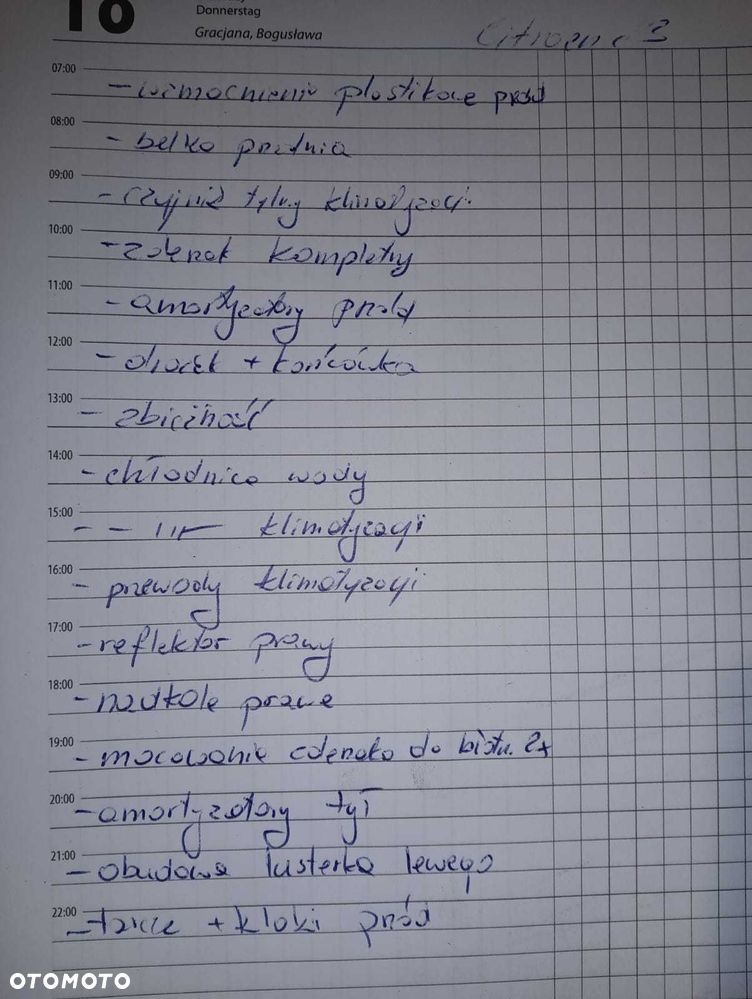 18
Donnerstag
Gracjana, Bogusława
Citroen C3
07:00
- wzmocnienie plastikowe przód
08:00
- belka przednia
09:00
- czujnik tylny klimatyzacji
10:00
- zderzak kompletny
11:00
- amortyzatory przód
12:00
- drążek + końcówka
13:00
- zbieżność
14:00
- chłodnica wody
15:00
- - 11 - klimatyzacji
16:00
- przewody klimatyzacji
17:00
- reflektor prawy
18:00
- nadkole prawe
19:00
- mocowanie zderzaka do błotn. 2x
20:00
- amortyzatory tył
21:00
- obudowa lusterka lewego
22:00
- tarcze + kloki przód
OTOMOTO